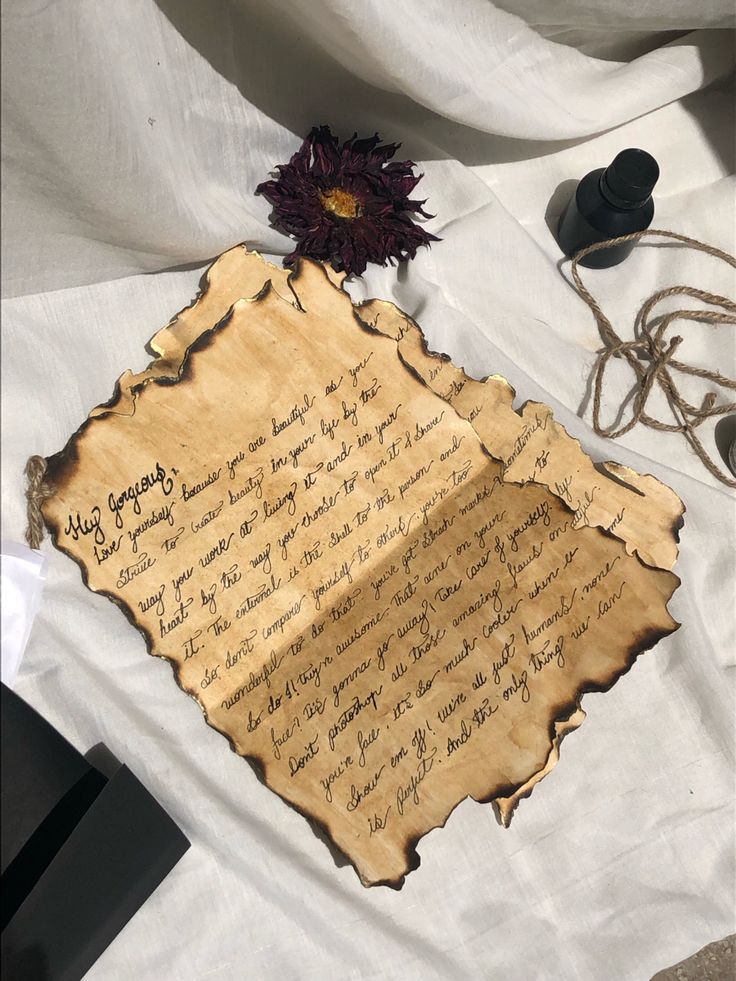 Hey Gorgeous,
Love yourself because you are beautiful as you
Strive to create beauty in your life by the
way you work at living it and in your
heart by the way you choose to open it & share
it. The enternal is the shell to the person and
So, don't compare yourself to others, you're too
wonderful to do that. you've got Strech marks?
So do I! they'r awesome. That acne on your
face? It's gonna go away. Take care of yourself.
Don't photoshop all those amazing flaws on
you're face, it's so much cooler when u
Show em off! We're all just humans, none
is perfect. And the only thing we can
in
you
sometimes
to
by
me